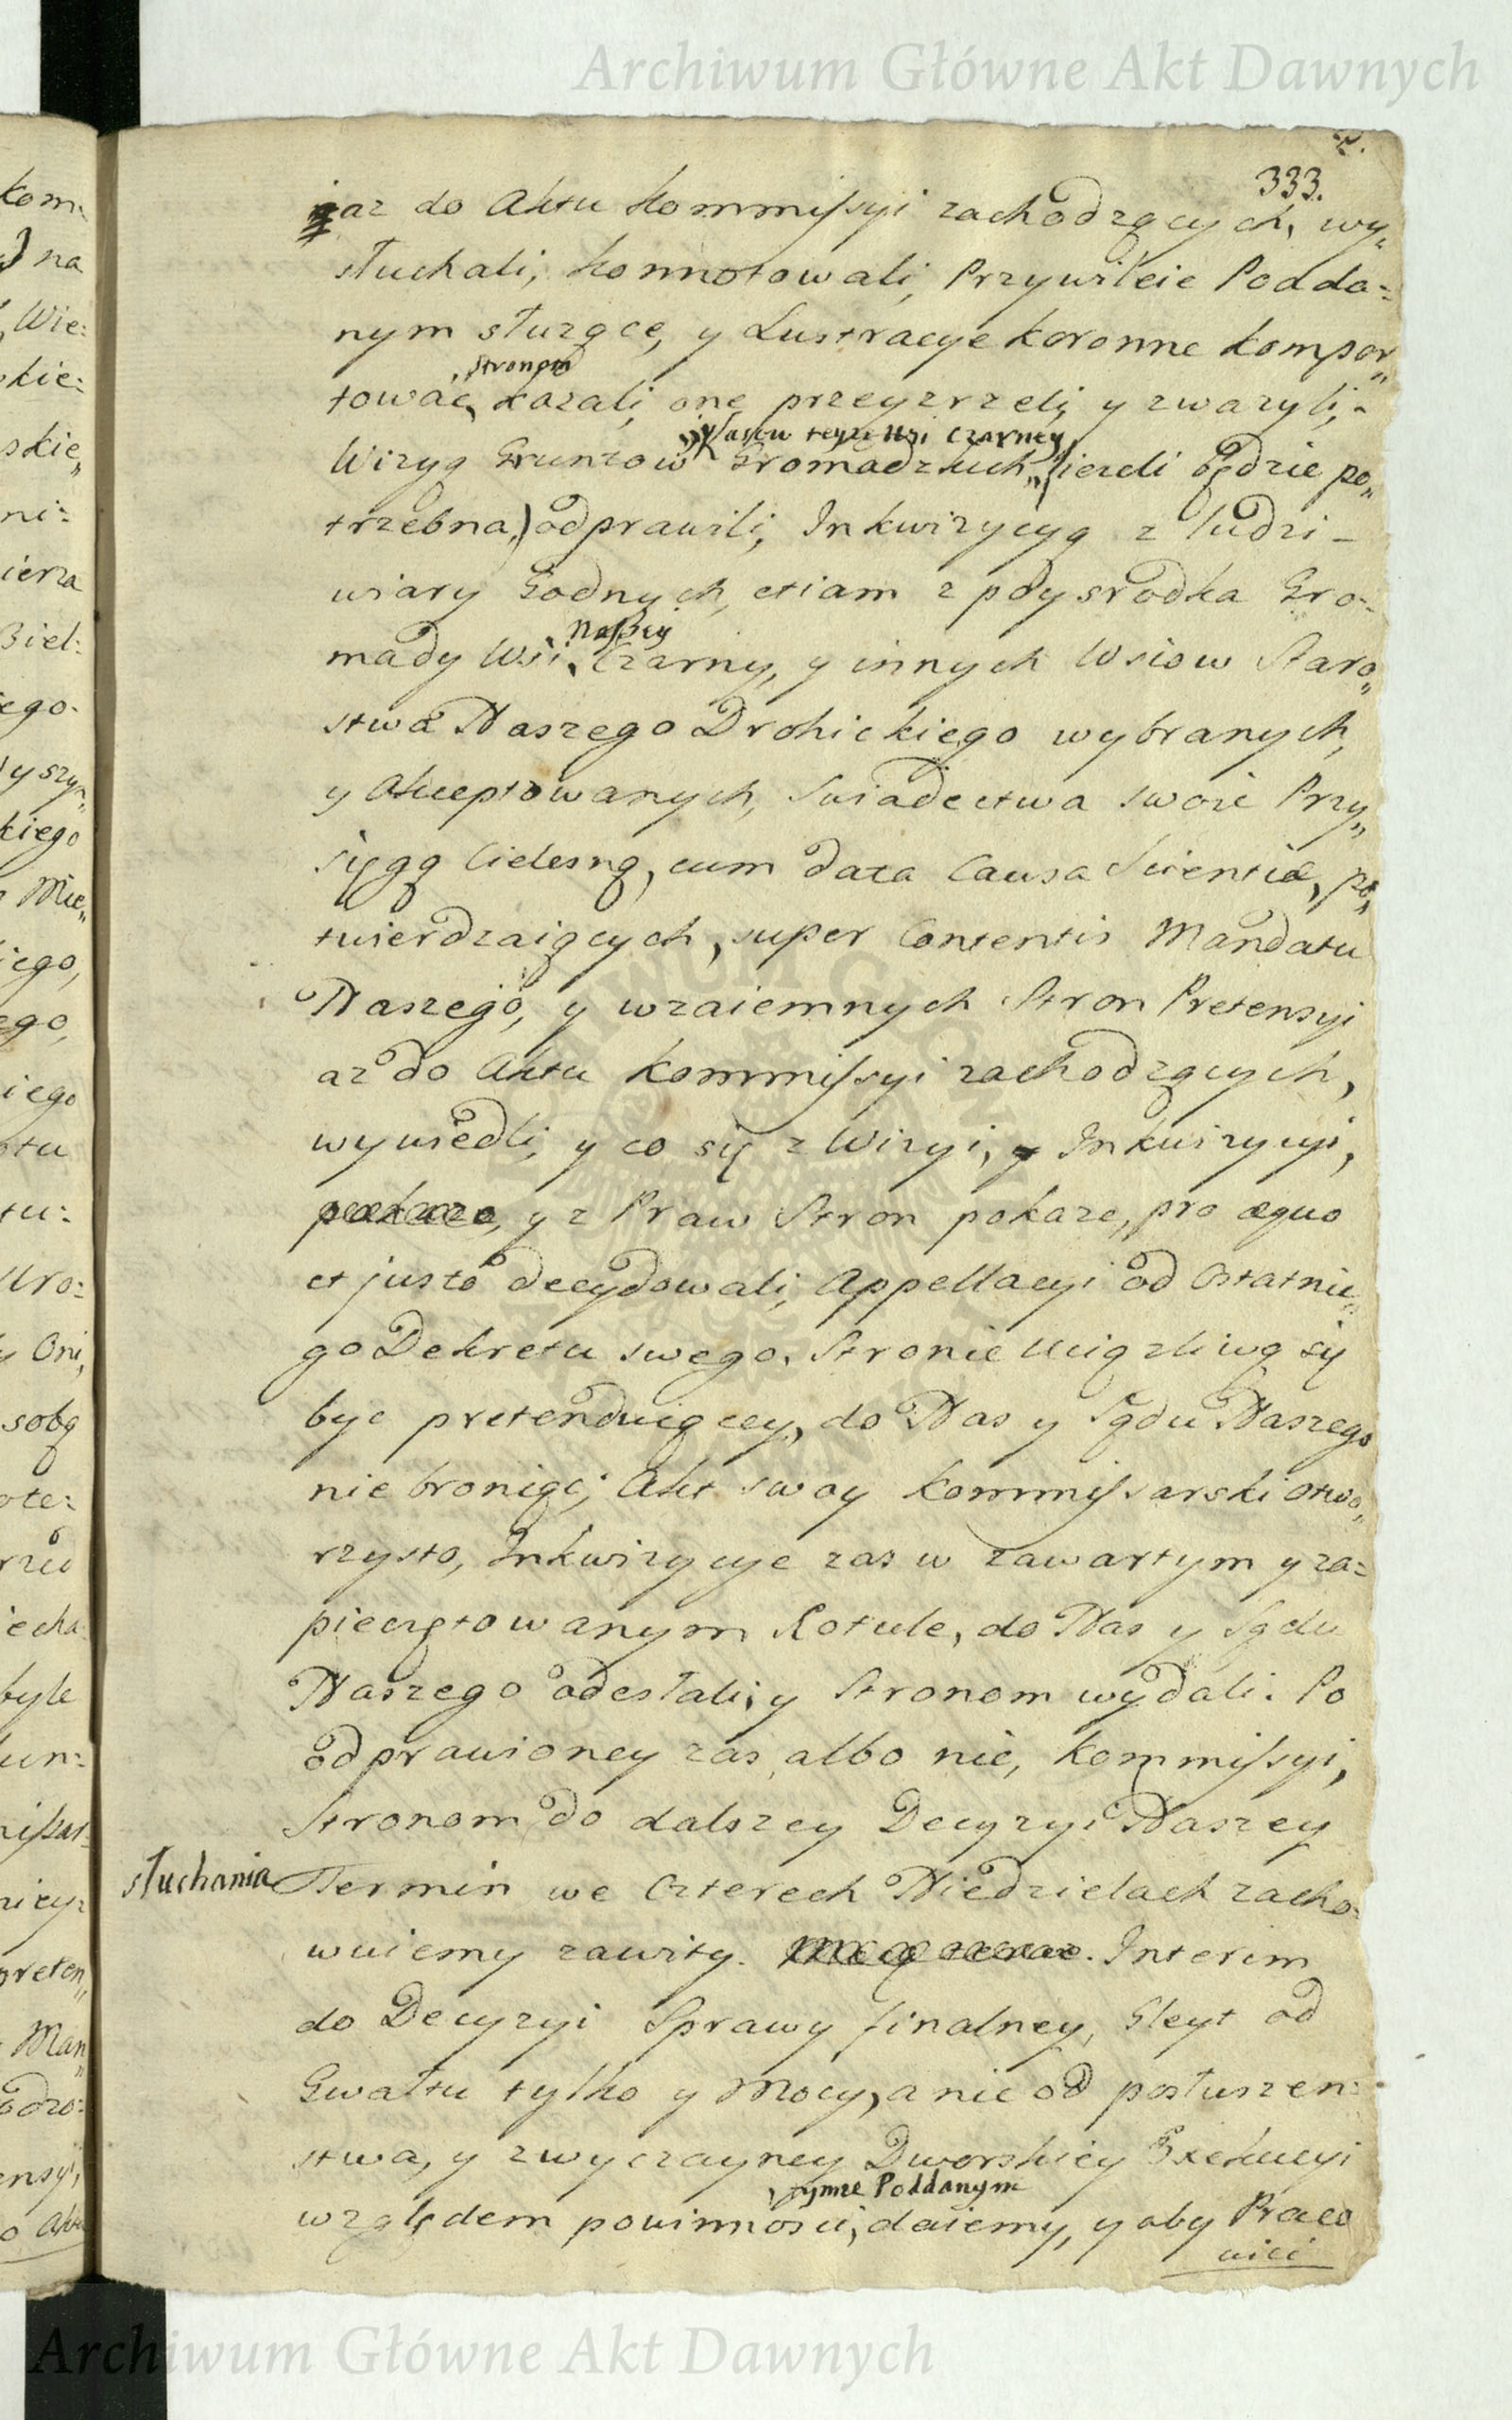 Archiwum Główne Akt Dawnych
333.
jaz do Aktu Kommissyi zachodzących, wy„
słuchali, konnotowali, Przywileie Podda=
nym służące, y Lustracye koronne kompor„
Stronom
tować kazali, one przeyzrzeli, y zwazyli,
y Lasow teyze Wsi Czarney
Wizyą Gruntow Gromadzkich, (iezeli będzie po„
trzebna,) odprawili, Inkwizycyą z ludzi
wiary godnych, etiam z pośrodka Gro=
Naszey
mady Wsi Czarny, y innych Wsiow Staro„
stwa Naszego Drohickiego wybranych,
y Akceptowanych, Swiadectwa swoie Przy„
sięgą Cielesną, cum data Causa Scientiæ, po„
twierdzaiących, super Contentis Mandatu
Naszego, y wzaiemnych Stron Pretensyi
az do Aktu Kommissyi zachodzących,
wywiedli, y co się z Wizyi, y Inkwizycyi,
pokaze, y z Praw Stron pokaze, pro æquo
et justo decydowali, Appellacyi od Ostatnie„
go Dekretu swego, Stronie Uciązliwą się
byc pretenduiącey, do Nas y Sądu Naszego
nie broniąc, Akt swoy Kommissarski otwo„
rzysto, Inkwizycye zas w zawartym y za=
pieczętowanym Rotule, do Nas y Sądu
Naszego odesłali, y Stronom wydali. Po
odprawioney zas, albo nie, Kommissyi,
Stronom do dalszey Decyzyi Naszey
słuchania
Termin we Czterech Niedzielach zacho=
wuiemy zawity. Interim
do Decyzyi Sprawy finalney, Gleyt od
Gwałtu tylko y Mocy, a nie od posłuszen=
stwa, y zwyczayney Dworskiey Exekucyi
tymze Poddanym
względem powinnosci, daiemy, y aby Praco
wici
kom=
na
Wie=
kie=
skie„
ni=
ierza
Biel=
ego
yszy„
kiego
Mie„
iego,
ego,
iego
tu=
Uro=
Oni,
sobą
ote=
iecha
byle
un=
preten„
Man
Archiwum Główne Akt Dawnych